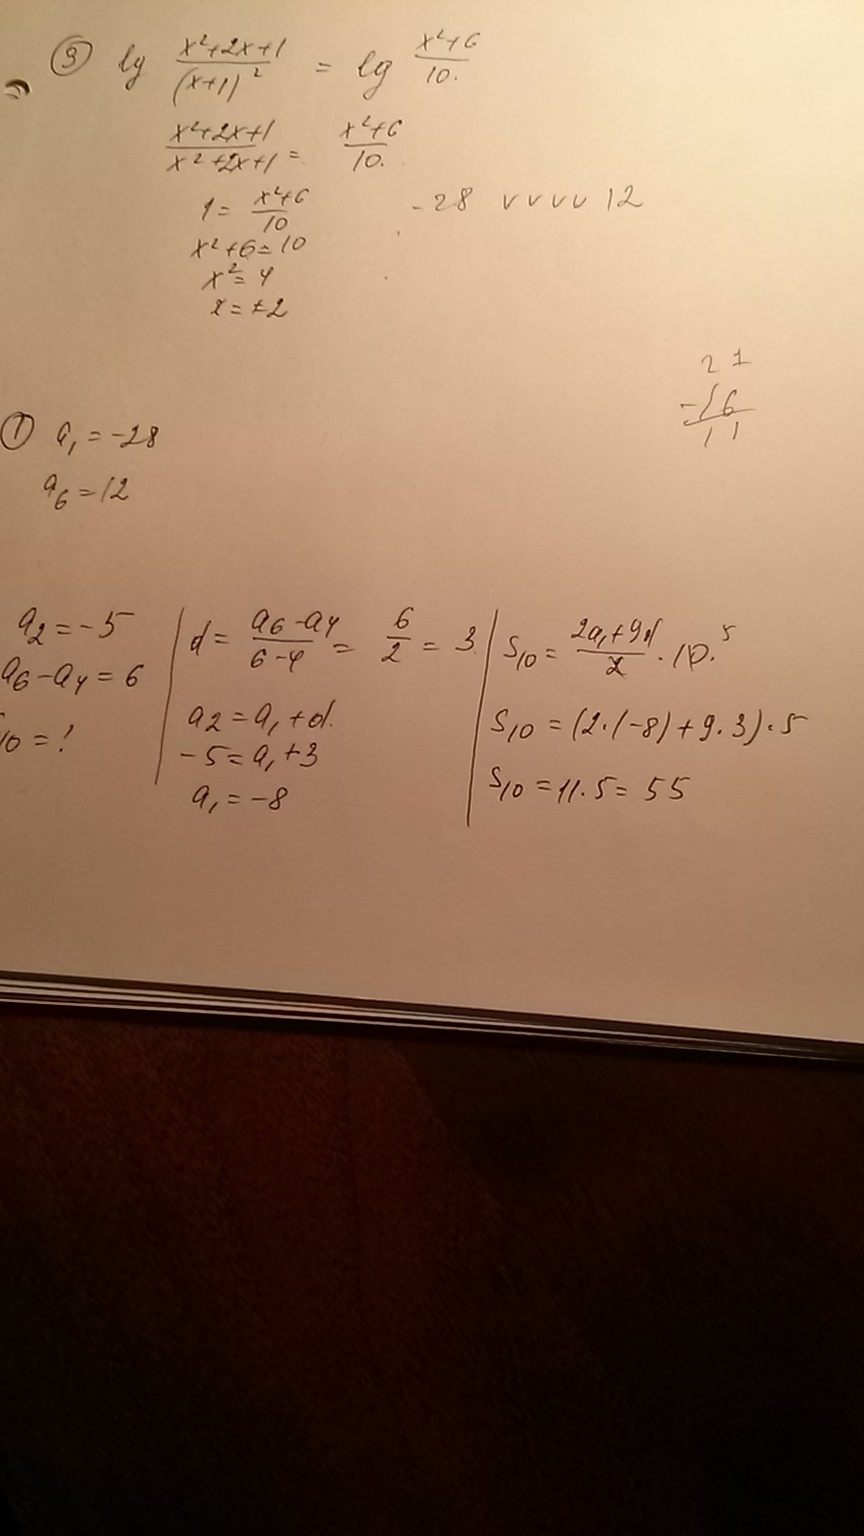 ③ lg (x²+2x+1)/(x+1)² = lg (x²+6)/10.
(x²+2x+1)/(x²+2x+1) = (x²+6)/10.
1 = (x²+6)/10
-28 v v v v 12
x²+6=10
x²=4
x=±2
21
-16
11
① a₁=-28
a₆=12
a₂=-5
a₆-a₄=6
10=!
d = (a₆-a₄)/(6-4) = 6/2 = 3
a₂=a₁+d.
-5=a₁+3
a₁=-8
S₁₀ = (2a₁+9d)/2 · 10. 5
S₁₀ = (2·(-8)+9·3)·5
S₁₀ = 11·5 = 55